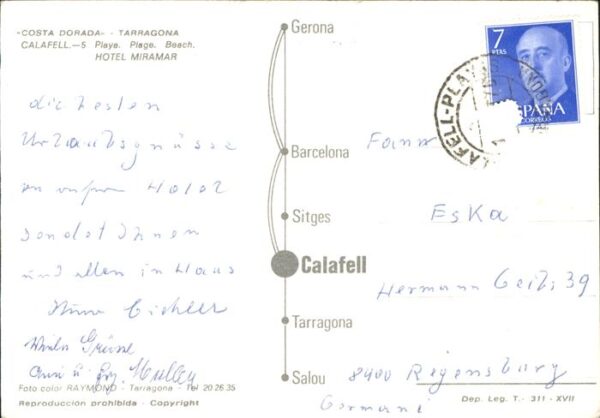 «COSTA DORADA» - TARRAGONA
CALAFELL.—5 Playa. Plage. Beach.
HOTEL MIRAMAR
die besten
Urlaubsgrüsse
Hotel
sendet Ihnen
und allen in Haus
Eichler
Grüsse
Foto color RAYMOND - Tarragona - Tel 20 26.35
Reproducción prohibida - Copyright
Gerona
Barcelona
Sitges
Calafell
Tarragona
Salou
7
PTAS
ESPAÑA
CORREOS
CALAFELL-PLAYA
EsKa
Hermann Geib. 39
8400 Regensburg
Germani
Dep. Leg. T. - 311 - XVII